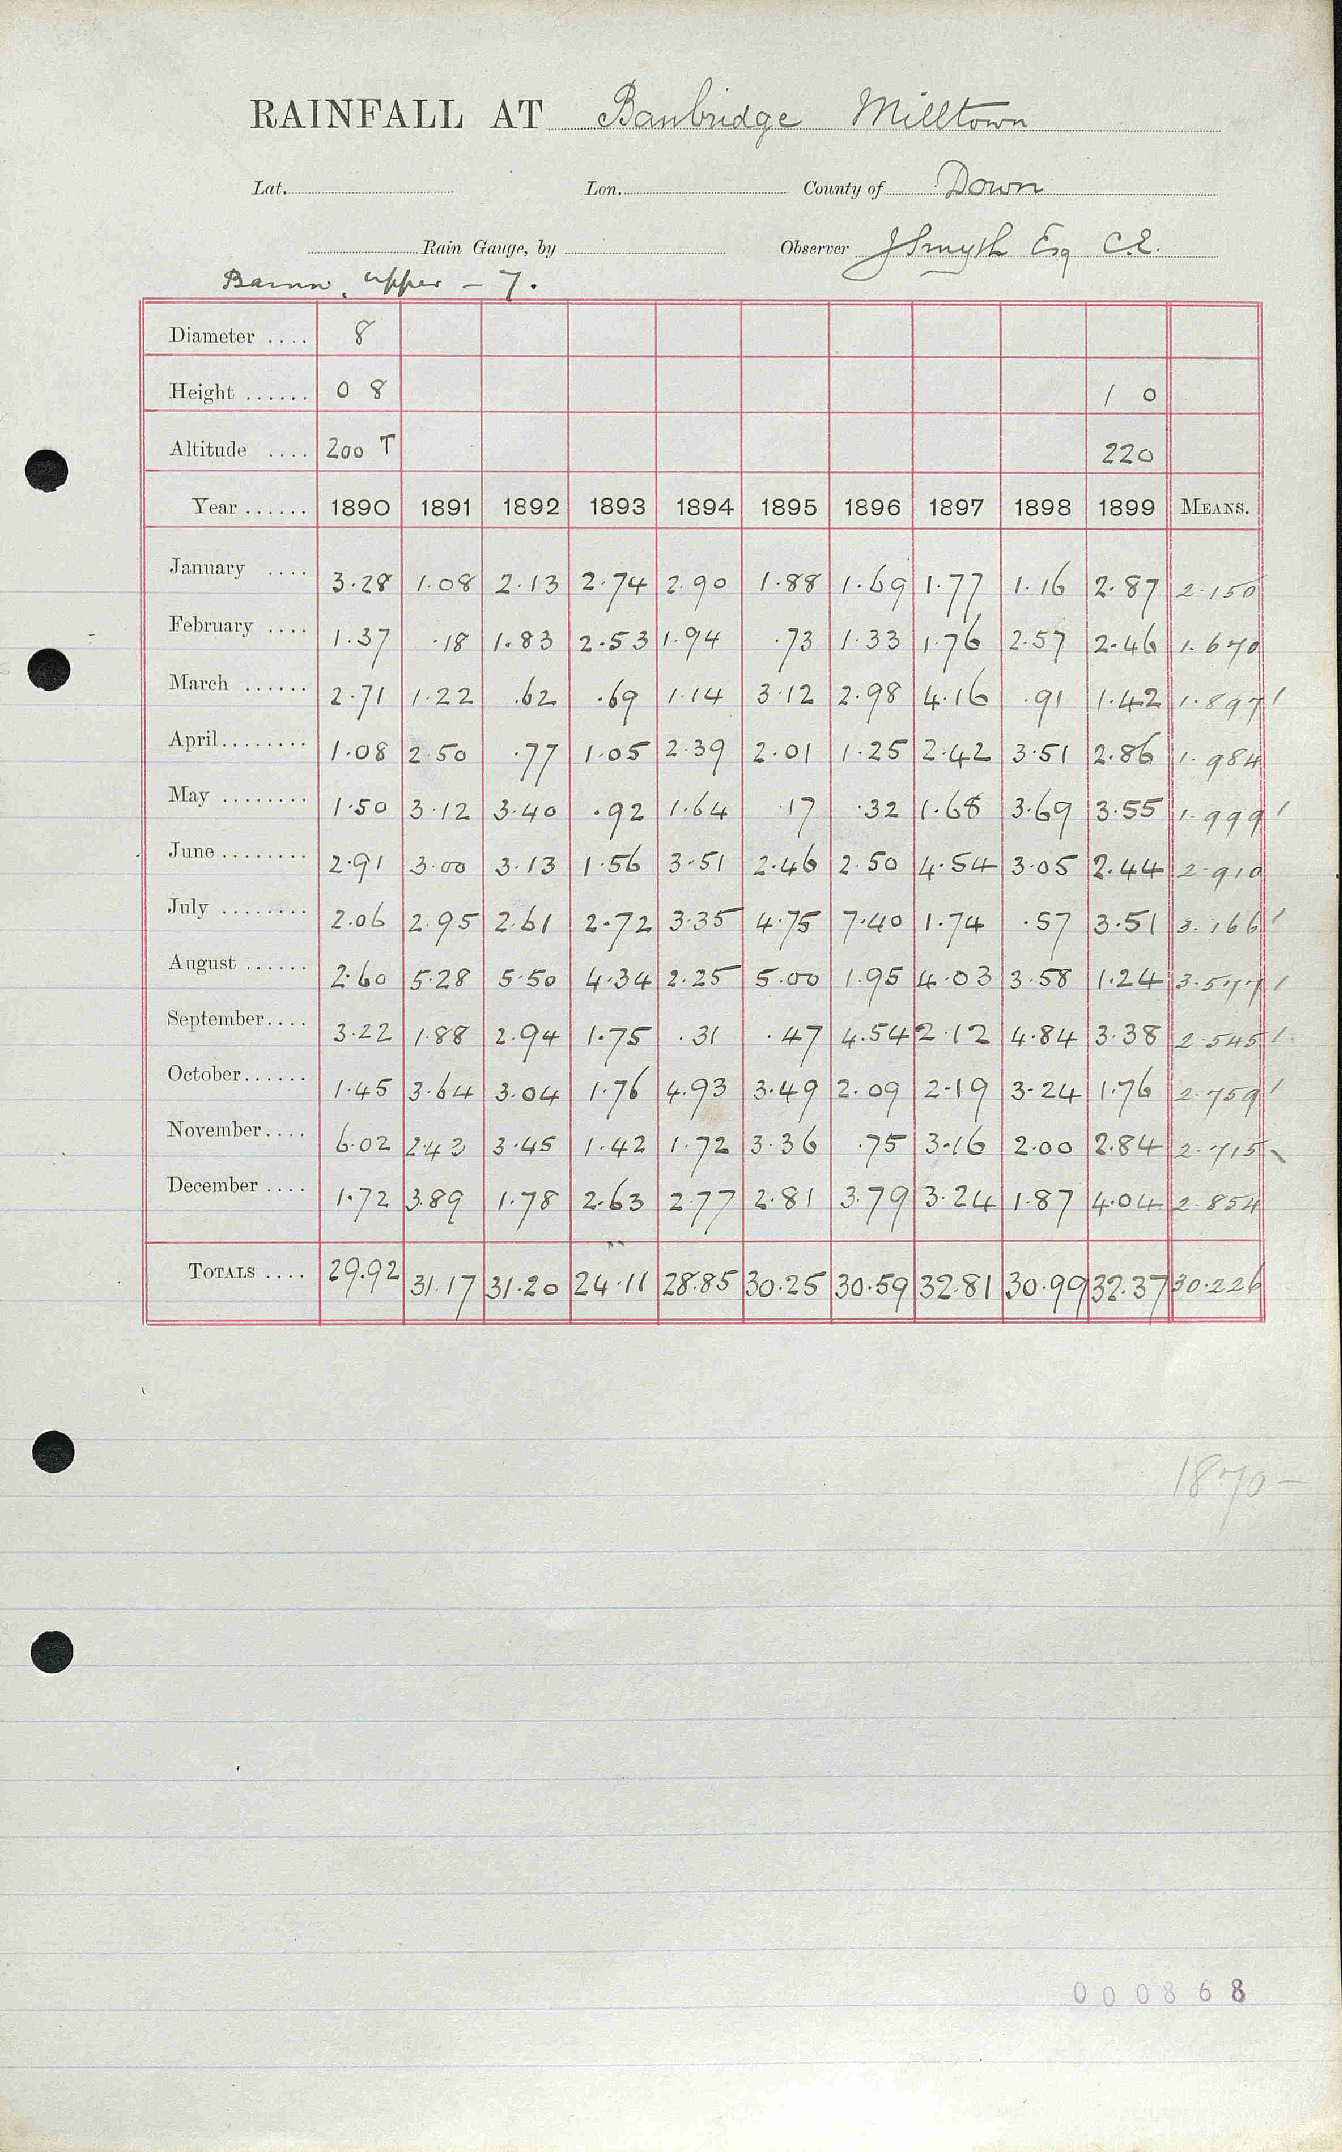 RAINFALL AT Banbridge Milltown
Lat. Lon. County of Down
Rain Gauge, by Observer J Smyth Esq C.E.
Bann, Upper - 7.
Diameter .... 8
Height ...... 0 8 1 0
Altitude .... 200 T 220
Year ...... 1890 1891 1892 1893 1894 1895 1896 1897 1898 1899 MEANS.
January .... 3.28 1.08 2.13 2.74 2.90 1.88 1.69 1.77 1.16 2.87 2.150
February .... 1.37 .18 1.83 2.53 1.94 .73 1.33 1.76 2.57 2.46 1.670
March ...... 2.71 1.22 .62 .69 1.14 3.12 2.98 4.16 .91 1.42 1.897
April........ 1.08 2.50 .77 1.05 2.39 2.01 1.25 2.42 3.51 2.86 1.984
May ........ 1.50 3.12 3.40 .92 1.64 .17 .32 1.68 3.69 3.55 1.999
June ........ 2.91 3.00 3.13 1.56 3.51 2.46 2.50 4.54 3.05 2.44 2.910
July ........ 2.06 2.95 2.61 2.72 3.35 4.75 7.40 1.74 .57 3.51 3.166
August ...... 2.60 5.28 5.50 4.34 2.25 5.00 1.95 4.03 3.58 1.24 3.577
September.... 3.22 1.88 2.94 1.75 .31 .47 4.54 2.12 4.84 3.38 2.545
October...... 1.45 3.64 3.04 1.76 4.93 3.49 2.09 2.19 3.24 1.76 2.759
November.... 6.02 2.43 3.45 1.42 1.72 3.36 .75 3.16 2.00 2.84 2.715
December .... 1.72 3.89 1.78 2.63 2.77 2.81 3.79 3.24 1.87 4.04 2.854
TOTALS .... 29.92 31.17 31.20 24.11 28.85 30.25 30.59 32.81 30.99 32.37 30.226
1870-
000868